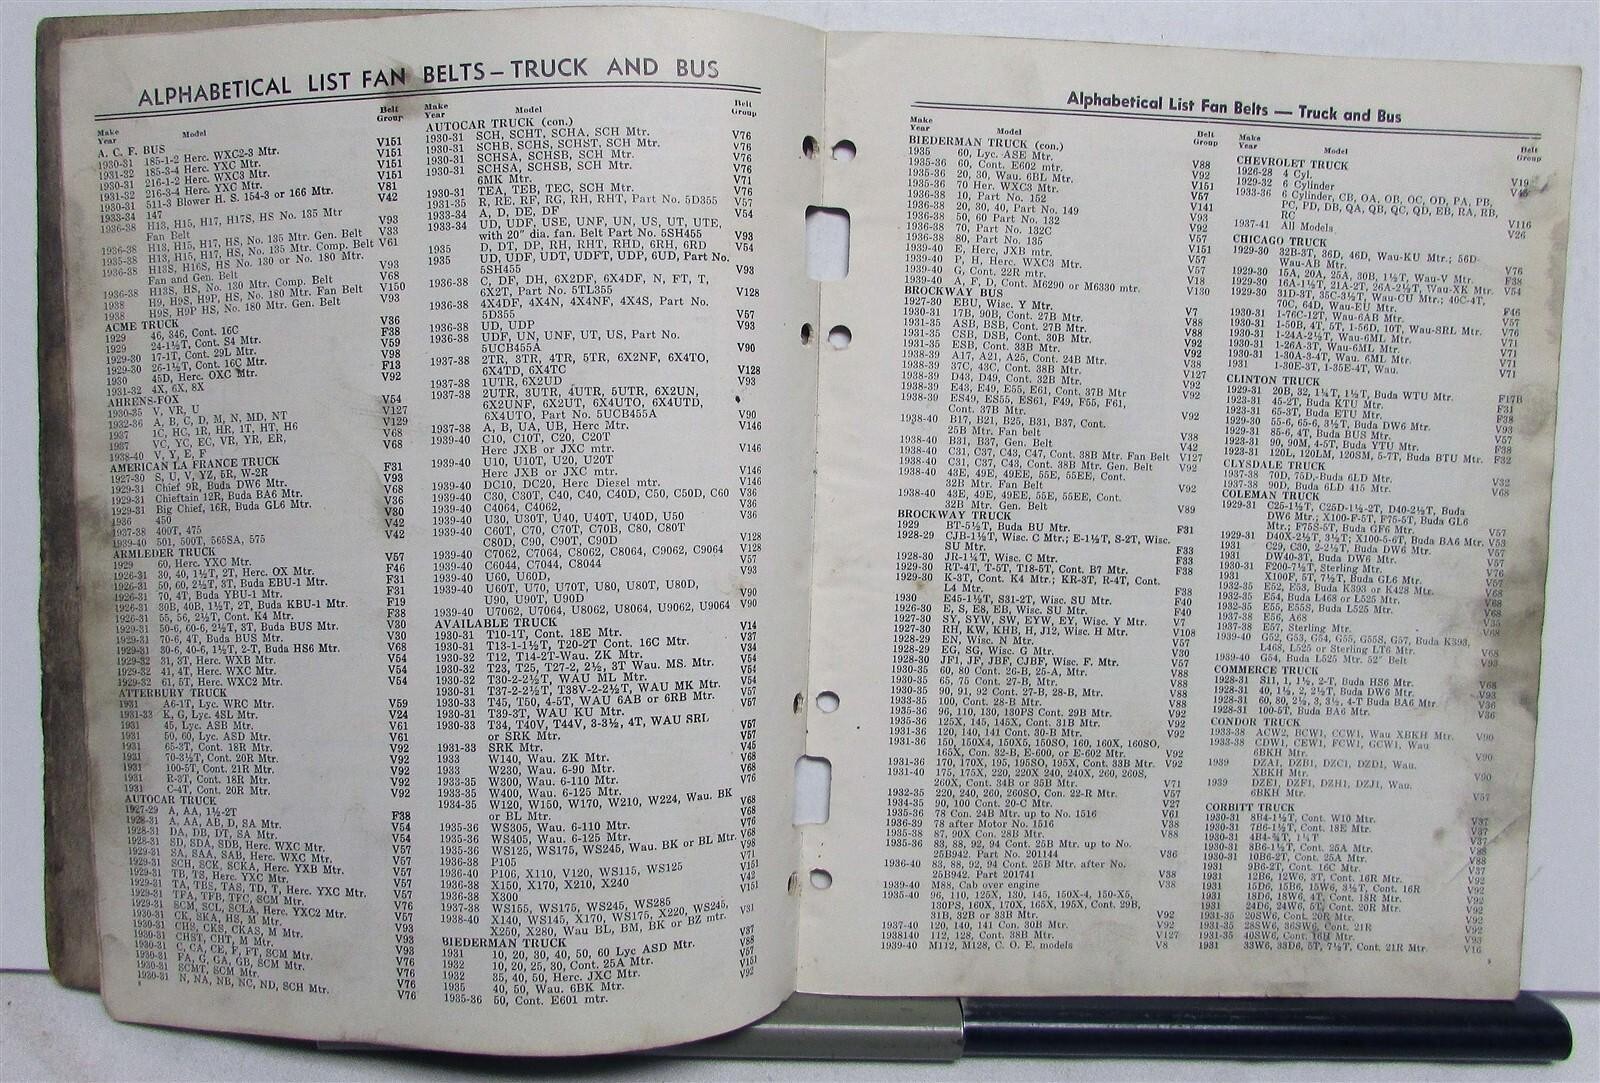 ALPHABETICAL LIST FAN BELTS – TRUCK AND BUS
Make Year Model Belt Group
A. C. F. BUS
1930-31 185-1-2 Herc. WXC2-3 Mtr. V151
1931-32 185-3-4 Herc. YXC Mtr. V151
1930-31 216-1-2 Herc. WXC3 Mtr. V151
1931-32 216-3-4 Herc. YXC Mtr. V151
1930-31 511-3 Blower H. S. 154-3 or 166 Mtr. V81
1933-34 147 V42
1936-38 H13, H15, H17, H17S, HS No. 135 Mtr
Fan Belt V93
1936-38 H13, H15, H17, HS, No. 135 Mtr. Gen. Belt V33
1935-38 H13, H15, H17, HS, No. 135 Mtr. Comp. Belt V61
1936-38 H13S, H16S, HS No. 130 or No. 180 Mtr.
Fan and Gen. Belt V93
1936-38 H13S, HS, No. 130 Mtr. Comp. Belt V68
1938 H9, H9S, H9P, HS, No. 180 Mtr. Fan Belt V150
1938 H9S, H9P HS, No. 180 Mtr. Gen. Belt V93
ACME TRUCK
1929 46, 346, Cont. 16C V36
1929 24-1½T, Cont. S4 Mtr. F38
1929-30 17-1T, Cont. 29L Mtr. V59
1929-30 26-1½T, Cont. 16C Mtr. V98
1930 45D, Herc. OXC Mtr. F13
1931-32 4X, 6X, 8X V92
AHRENS-FOX
1930-35 V, VR, U V54
1932-36 A, B, C, D, M, N, MD, NT V127
1937 1C, HC, 1R, HR, 1T, HT, H6 V129
1937 VC, YC, EC, VR, YR, ER, V68
1938-40 V, Y, E, F V68
AMERICAN LA FRANCE TRUCK
1927-30 S, U, V, YZ, 5R, W-2R F31
1929-31 Chief 9R, Buda DW6 Mtr. V93
1929-31 Chieftain 12R, Buda BA6 Mtr. V68
1929-31 Big Chief, 16R, Buda GL6 Mtr. V36
1936 450 V30
1937-38 400T, 475 V42
1939-40 501, 500T, 565SA, 575 V42
ARMLEDER TRUCK
1929 60, Herc. YXC Mtr. V57
1926-31 30, 40, 1½T, 2T, Herc. OX Mtr. F46
1926-31 50, 60, 2½T, 3T, Buda EBU-1 Mtr. F31
1926-31 70, 4T, Buda YBU-1 Mtr. F31
1926-31 30B, 40B, 1½T, 2T, Buda KBU-1 Mtr. F19
1926-31 55, 56, 2½T, Cont. K4 Mtr. F38
1929-31 50-6, 60-6, 2½T, 3T, Buda BUS Mtr. V30
1929-31 70-6, 4T, Buda BUS Mtr. V30
1929-31 30-6, 40-6, 1½T, 2-T, Buda HS6 Mtr. V68
1929-32 31, 3T, Herc. WXB Mtr. V54
1929-32 41, 4T, Herc. WXC Mtr. V54
1929-32 61, 5T, Herc. WXC2 Mtr. V54
ATTERBURY TRUCK
1931 A6-1T, Lyc. WRC Mtr. V59
1931-33 K, G, Lyc. 4SL Mtr. V24
1931 45, Lyc. ASB Mtr. V61
1931 50, 60, Lyc. ASD Mtr. V61
1931 65-3T, Cont. 18R Mtr. V92
1931 70-3½T, Cont. 20R Mtr. V92
1931 100-5T, Cont. 21R Mtr. V92
1931 R-3T, Cont. 18R Mtr. V92
1931 C-4T, Cont. 20R Mtr. V92
AUTOCAR TRUCK
1927-29 A, AA, 1½-2T F38
1928-31 A, AA, AB, D, SA Mtr. V54
1928-31 DA, DB, DT, SA Mtr. V54
1928-31 SD, SDA, SDB, Herc. WXC Mtr. V57
1929-31 SA, SAA, SAB, Herc. WXC Mtr. V57
1929-31 SCH, SCK, SCKA, Herc. YXB Mtr. V57
1929-31 TB, TS, Herc. YXC Mtr. V57
1929-31 TA, TBS, TAS, TD, T, Herc. YXC Mtr. V57
1929-31 TFA, TFB, TFC, SCM Mtr. V76
1929-31 SCM, SCL, SCLA, Herc. YXC2 Mtr. V57
1930-31 CK, SKA, HS, M Mtr. V93
1930-31 CHS, CKS, CKAS, M Mtr. V93
1930-31 CHST, CHT, M Mtr. V93
1930-31 C, CA, CE, F, FT, SCM Mtr. V76
1930-31 FA, G, GA, GB, SCM Mtr. V76
1930-31 SCMT, SCM Mtr. V76
1930-31 N, NA, NB, NC, ND, SCH Mtr. V76
Make Year Model Belt Group
AUTOCAR TRUCK (con.)
1930-31 SCH, SCHT, SCHA, SCH Mtr. V76
1930-31 SCHB, SCHS, SCHST, SCH Mtr. V76
1930-31 SCHSA, SCHSB, SCH Mtr. V76
1930-31 SCHSA, SCHSB, SCH Mtr. V76
6MK Mtr. V71
1930-31 TEA, TEB, TEC, SCH Mtr. V76
1931-35 R, RE, RF, RG, RH, RHT, Part No. 5D355 V57
1933-34 A, D, DE, DF V54
1933-34 UD, UDF, USE, UNF, UN, US, UT, UTE,
with 20" dia. fan. Belt Part No. 5SH455 V93
1935 D, DT, DP, RH, RHT, RHD, 6RH, 6RD V54
1935 UD, UDF, UDT, UDFT, UDP, 6UD, Part No.
5SH455 V93
1936-38 C, DF, DH, 6X2DF, 6X4DF, N, FT, T,
6X2T, Part No. 5TL355 V128
1936-38 4X4DF, 4X4N, 4X4NF, 4X4S, Part No.
5D355 V57
1936-38 UD, UDP V93
1936-38 UDF, UN, UNF, UT, US, Part No.
5UCB455A V90
1937-38 2TR, 3TR, 4TR, 5TR, 6X2NF, 6X4TO,
6X4TD, 6X4TC V128
1937-38 1UTR, 6X2UD V93
1937-38 2UTR, 3UTR, 4UTR, 5UTR, 6X2UN,
6X2UNF, 6X2UT, 6X4UTO, 6X4UTD,
6X4UTO, Part No. 5UCB455A V90
1937-38 A, B, UA, UB, Herc Mtr. V146
1939-40 C10, C10T, C20, C20T
Herc JXB or JXC mtr. V146
1939-40 U10, U10T, U20, U20T
Herc JXB or JXC mtr. V146
1939-40 DC10, DC20, Herc Diesel mtr. V146
1939-40 C30, C30T, C40, C40, C40D, C50, C50D, C60 V36
1939-40 C4064, C4062, V36
1939-40 U30, U30T, U40, U40T, U40D, U50 V36
1939-40 C60T, C70, C70T, C70B, C80, C80T
C80D, C90, C90T, C90D V128
1939-40 C7062, C7064, C8062, C8064, C9062, C9064 V128
1939-40 C6044, C7044, C8044 V57
1939-40 U60, U60D, V93
1939-40 U60T, U70, U70T, U80, U80T, U80D,
U90, U90T, U90D V90
1939-40 U7062, U7064, U8062, U8064, U9062, U9064 V90
AVAILABLE TRUCK
1930-31 T10-1T, Cont. 18E Mtr. V14
1930-31 T13-1-1½T, T20-2T Cont. 16C Mtr. V37
1930-32 T12, T14-2T-Wau. ZK Mtr. V34
1930-32 T23, T25, T27-2, 2½, 3T Wau. MS. Mtr. V54
1930-32 T30-2-2½T, WAU ML Mtr. V54
1930-31 T37-2-2½T, T38V-2-2½T, WAU MK Mtr. V57
1930-33 T45, T50, 4-5T, WAU 6AB or 6RB Mtr. V57
1930-31 T39-3T, WAU KU Mtr.
1930-33 T34, T40V, T44V, 3-3½, 4T, WAU SRL
or SRK Mtr. V57
1931-33 SRK Mtr. V57
1933 W140, Wau. ZK Mtr. V45
1933 W230, Wau. 6-90 Mtr. V68
1933-35 W300, Wau. 6-110 Mtr. V68
1933-35 W400, Wau. 6-125 Mtr. V76
1934-35 W120, W150, W170, W210, W224, Wau. BK
or BL Mtr. V68
1935-36 WS305, Wau. 6-110 Mtr. V68
1935-36 WS405, Wau. 6-125 Mtr. V76
1935-36 WS125, WS175, WS245, Wau. BK or BL Mtr. V68
1936-38 P105 V98
1936-40 P106, X110, V120, WS115, WS125 V71
1936-38 X150, X170, X210, X240 V151
1936-38 X300 V42
1937-38 WS155, WS175, WS245, WS285 V151
1938-40 X140, WS145, X170, WS175, X220, WS245,
X250, X280, Wau BL, BM, BK or BZ mtr. V31
BIEDERMAN TRUCK
1931 10, 20, 30, 40, 50, 60 Lyc ASD Mtr. V37
1932 10, 20, 25, 30, Cont. 25A Mtr. V88
1932 35, 40, 50, Herc. JXC Mtr. V57
1935 40, 50, Wau. 6BK Mtr. V151
1935-36 50, Cont. E601 mtr. V92
Alphabetical List Fan Belts — Truck and Bus
Make Year Model Belt Group
BIEDERMAN TRUCK (con.)
1935 60, Lyc. ASE Mtr.
1935-36 60, Cont. E602 mtr. V88
1935-36 20, 30, Wau. 6BL Mtr. V92
1935-36 70 Her. WXC3 Mtr. V151
1936-38 10, Part No. 152 V57
1936-38 20, 30, 40, Part No. 149 V141
1936-38 50, 60 Part No. 132 V93
1936-38 70, Part No. 132C V92
1936-38 80, Part No. 135 V57
1939-40 E, Herc, JXB mtr. V151
1939-40 P, H, Herc. WXC3 Mtr. V57
1939-40 G, Cont. 22R mtr. V57
1939-40 A, F, D, Cont. M6290 or M6330 mtr. V18
BROCKWAY BUS V130
1927-30 EBU, Wisc. Y Mtr.
1930-31 17B, 90B, Cont. 27B Mtr. V7
1931-35 ASB, BSB, Cont. 27B Mtr. V88
1931-35 CSB, DSB, Cont. 30B Mtr. V88
1931-35 ESB, Cont. 33B Mtr. V92
1938-39 A17, A21, A25, Cont. 24B Mtr. V92
1938-39 37C, 43C, Cont. 38B Mtr. V38
1938-39 D43, D49, Cont. 32B Mtr. V127
1938-39 E43, E49, E55, E61, Cont. 37B Mtr V92
1938-39 ES49, ES55, ES61, F49, F55, F61,
Cont. 37B Mtr. V92
1938-40 B17, B21, B25, B31, B37, Cont.
25B Mtr. Fan belt V38
1938-40 B31, B37, Gen. Belt V42
1938-40 C31, C37, C43, C47, Cont. 38B Mtr. Fan Belt V127
1938-40 C31, C37, C43, Cont. 38B Mtr. Gen. Belt V92
1938-40 43E, 49E, 49EE, 55E, 55EE, Cont.
32B Mtr. Fan Belt V92
1938-40 43E, 49E, 49EE, 55E, 55EE, Cont.
32B Mtr. Gen. Belt V89
BROCKWAY TRUCK
1929 BT-5½T, Buda BU Mtr. F31
1928-29 CJB-1½T, Wisc. C Mtr.; E-1½T, S-2T, Wisc.
SU Mtr. F33
1928-30 JR-1¼T, Wisc. C Mtr. F33
1929-30 RT-4T, T-5T, T18-5T, Cont. B7 Mtr. F38
1929-30 K-3T, Cont. K4 Mtr.; KR-3T, R-4T, Cont.
L4 Mtr. F38
1930 E45-1½T, S31-2T, Wisc. SU Mtr. F40
1926-30 E, S, E8, EB, Wisc. SU Mtr. F40
1927-30 SY, SYW, SW, EYW, EY, Wisc. Y Mtr. V7
1927-30 RH, KW, KHB, H, J12, Wisc. H Mtr. V108
1928-29 EN, Wisc. N Mtr. V57
1928-29 EG, SG, Wisc. G Mtr. V30
1928-30 JF1, JF, JBF, CJBF, Wisc. F. Mtr. V57
1930-35 60, 80 Cont. 26-B, 25-A, Mtr. V88
1930-35 65, 75 Cont. 27-B, Mtr. V88
1930-35 90, 91, 92 Cont. 27-B, 28-B, Mtr. V88
1930-35 100, Cont. 28-B Mtr. V88
1935-36 96, 110, 130, 130PS Cont. 29B Mtr. V92
1935-36 125X, 145, 145X, Cont. 31B Mtr. V92
1931-36 120, 140, 141 Cont. 30-B Mtr. V92
1931-36 150, 150X4, 150X5, 150SO, 160, 160X, 160SO,
165X, Cont. 32-B, E-600, or E-602 Mtr. V92
1931-36 170, 170X, 195, 195SO, 195X, Cont. 33B Mtr. V92
1931-40 175, 175X, 220, 220X 240, 240X, 260, 260S,
260X, Cont. 34B or 35B Mtr. V71
1932-35 220, 240, 260, 260SO, Con. 22-R Mtr. V57
1934-35 90, 100 Cont. 20-C Mtr. V27
1935-36 78 Con. 24B Mtr. up to No. 1516 V61
1936-39 78 after Motor No. 1516 V38
1935-38 87, 90X Con. 28B Mtr. V88
1935-36 83, 88, 92, 94 Cont. 25B Mtr. up to No.
25B942. Part No. 201144 V36
1936-40 83, 88, 92, 94 Cont. 25B Mtr. after No.
25B942. Part No. 201741 V38
1939-40 M88, Cab over engine V38
1935-40 96, 110, 125X, 130, 145, 150X-4, 150-X5,
130PS, 160X, 170X, 165X, 195X, Cont. 29B,
31B, 32B or 33B Mtr. V92
1937-40 120, 140, 141 Con. 30B Mtr. V92
1938140 112, 128, Cont. 38B Mtr. V127
1939-40 M112, M128, C. O. E. models V8
Make Year Model Belt Group
CHEVROLET TRUCK
1926-28 4 Cyl. V19
1929-32 6 Cylinder
1933-36 6 Cylinder, CB, OA, OB, OC, OD, PA, PB,
PC, PD, DB, QA, QB, QC, QD, EB, RA, RB,
RC V116
1937-41 All Models V26
CHICAGO TRUCK
1929-30 32B-3T, 36D, 46D, Wau-KU Mtr.; 56D-
Wau-AB Mtr. V76
1929-30 15A, 20A, 25A, 30B, 1½T, Wau-V Mtr. F38
1929-30 16A-1½T, 21A-2T, 26A-2½T, Wau-XK Mtr. V54
1929-30 31D-3T, 35C-3½T, Wau-CU Mtr.; 40C-4T,
70C, 64D, Wau-EU Mtr. F46
1930-31 1-76C-12T, Wau-6AB Mtr. V57
1930-31 1-50B, 4T, 5T, 1-56D, 10T, Wau-SRL Mtr. V76
1930-31 1-24A-2½T, Wau-6ML Mtr. V71
1930-31 1-26A-3T, Wau-6ML Mtr. V71
1930-31 1-30A-3-4T, Wau. 6ML Mtr. V71
1931 1-30E-3T, 1-35E-4T, Wau. V71
CLINTON TRUCK
1929-31 20B, 32, 1¼T, 1½T, Buda WTU Mtr. F17B
1923-31 45-2T, Buda KTU Mtr. F31
1923-31 65-3T, Buda ETU Mtr. F38
1929-31 55-6, 65-6, 3½T, Buda DW6 Mtr. V93
1929-31 85-6, 4T, Buda BUS Mtr. V57
1923-31 90, 90M, 4-5T, Buda YTU Mtr. F38
1923-31 120L, 120LM, 120SM, 5-7T, Buda BTU Mtr. F32
CLYSDALE TRUCK
1937-38 70D, 75D, Buda 6LD Mtr. V32
1937-38 90D, Buda 6LD 415 Mtr. V68
COLEMAN TRUCK
1929-31 C25-1½T, C25D-1½-2T, D40-2½T, Buda
DW6 Mtr.; X100-F-5T, F75-5T, Buda GL6
Mtr.; F75S-5T, Buda GF6 Mtr. V57
1929-31 D40X-2½T, 3½T; X100-5-6T, Buda BA6 Mtr. V53
1931 C29, C30, 2-2½T, Buda DW6 Mtr. V57
1931 DW40-3T, Buda DW6 Mtr. V57
1930-31 F200-7½T, Sterling Mtr. V76
1931 X100F, 5T, 7½T, Buda GL6 Mtr. V57
1932-35 E52, E53, Buda K393 or K428 Mtr. V68
1932-35 E54, Buda L468 or L525 Mtr. V68
1932-35 E55, E55S, Buda L525 Mtr. V68
1937-38 E56, A68
1937-38 E57, Sterling Mtr. V68
1939-40 G52, G53, G54, G55, G55S, G57, Buda K393,
L468, L525 or Sterling LT6 Mtr. V68
1939-40 G54, Buda L525 Mtr. 52" Belt V93
COMMERCE TRUCK
1928-31 S11, 1, 1½, 2-T, Buda HS6 Mtr. V68
1928-31 40, 1½, 2, 2½T, Buda DW6 Mtr. V93
1928-31 60, 80, 2½, 3, 3½, 4-T Buda BA6 Mtr. V36
1928-31 100-5T, Buda BA6 Mtr. V36
CONDOR TRUCK
1933-38 ACW2, BCW1, CCW1, Wau XBKH Mtr. V90
1933-38 CDW1, CEW1, FCW1, GCW1, Wau
6BKH Mtr. V90
1939 DZA1, DZB1, DZC1, DZD1, Wau.
XBKH Mtr. V90
1939 DZE1, DZF1, DZH1, DZJ1, Wau.
6BKH Mtr. V57
CORBITT TRUCK
1930-31 8B4-1½T, Cont. W10 Mtr. V37
1930-31 7B6-1½T, Cont. 18E Mtr. V37
1930-31 4B4-¾T, 1¼T V37
1930-31 8B6-1½T, Cont. 25A Mtr. V88
1930-31 10B6-2T, Cont. 25A Mtr. V88
1931 9B6-2T, Cont. 16C Mtr. V37
1931 12B6, 12W6, 3T, Cont. 16R Mtr. V92
1931 15D6, 15B6, 15W6, 3½T, Cont. 16R V92
1931 18D6, 18W6, 4T, Cont. 18R Mtr. V92
1931 24D6, 24W6, 5T, Cont. 20R Mtr. V92
1931-35 20SW6, Cont. 20R Mtr. V92
1931-35 28SW6, 36SW6, Cont. 21R V92
1931-35 40SW6, Cont. 16H Mtr. V93
1931 33W6, 33D6, 5T, 7½T, Cont. 21R Mtr. V16